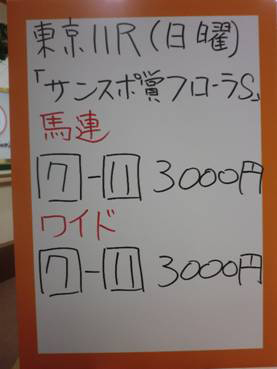 東京11R(日曜)
「サンスポ賞フローラS」
馬連
7-11 3000円
ワイド
7-11 3000円